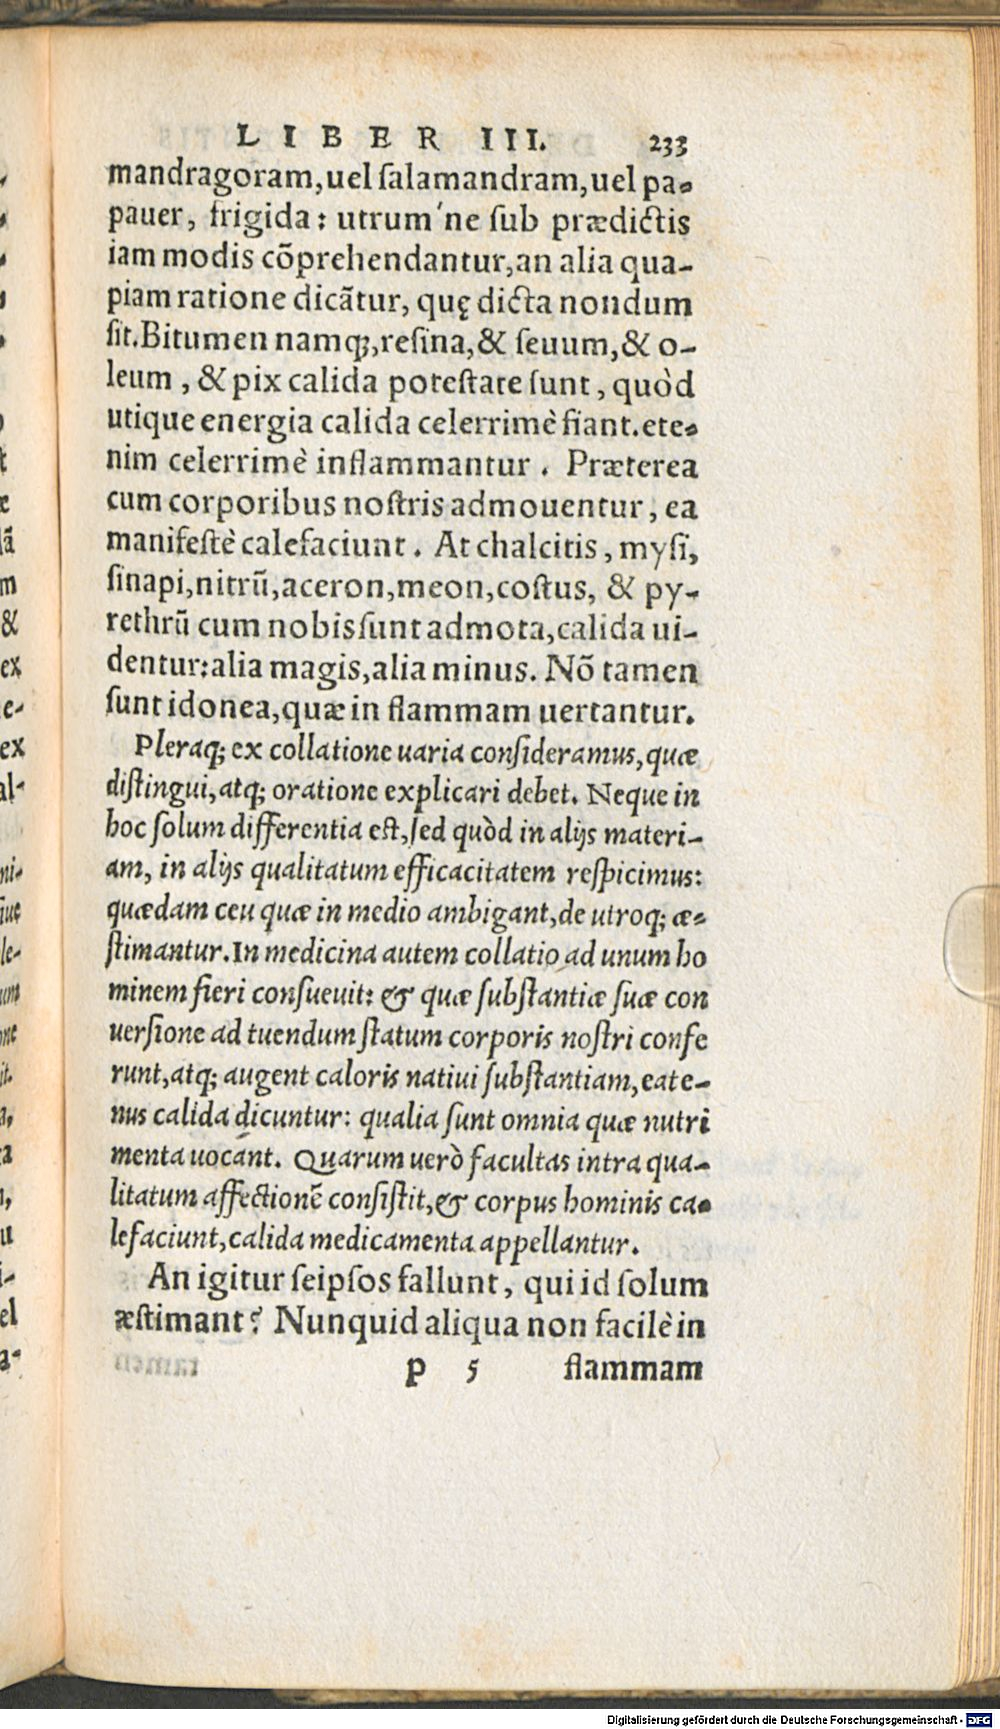 LIBER III. 233
mandragoram,uel ſalamandram,uel pa-
pauer, frigida: utrum'ne ſub prædictis
iam modis cõprehendantur,an alia qua-
piam ratione dicãtur, quę dicta nondum
ſit.Bitumen namq;,reſina,& ſeuum,& o-
leum , & pix calida poteſtate ſunt , quòd
utique energia calida celerrimè fiant.ete-
nim celerrimè inflammantur . Præterea
cum corporibus noſtris admouentur , ea
manifeſtè calefaciunt . At chalcitis , myſi,
ſinapi,nitrũ,aceron,meon,coſtus, & py-
rethrũ cum nobis ſunt admota,calida ui-
dentur:alia magis,alia minus. Nõ tamen
ſunt idonea,quæ in flammam uertantur.
Pleraq; ex collatione uaria conſideramus,quæ
diſtingui,atq; oratione explicari debet. Neque in
hoc ſolum differentia eſt,ſed quòd in alijs materi-
am, in alijs qualitatum efficacitatem reſpicimus:
quædam ceu quæ in medio ambigant,de utroq; æ-
ſtimantur.In medicina autem collatio ad unum ho
minem fieri conſueuit: & quæ ſubſtantiæ ſuæ con
uerſione ad tuendum ſtatum corporis noſtri confe
runt,atq; augent caloris natiui ſubſtantiam,eate-
nus calida dicuntur: qualia ſunt omnia quæ nutri
menta uocant. Quarum uerò facultas intra qua-
litatum affectionẽ conſiſtit,& corpus hominis ca-
lefaciunt,calida medicamenta appellantur.
An igitur ſeipſos fallunt , qui id ſolum
æſtimant? Nunquid aliqua non facilè in
p 5 flammam
Digitalisierung gefördert durch die Deutsche Forschungsgemeinschaft - DFG